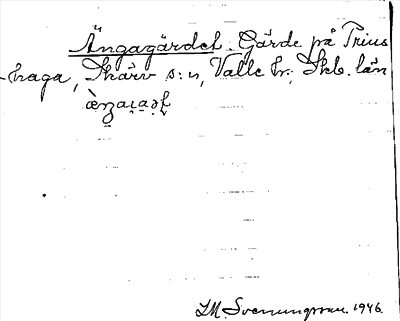 Ängagärdet. Gärde på Trius
-haga, Skärv s:n, Valle hr; Skb. län
J.M. Svenungsson. 1946.